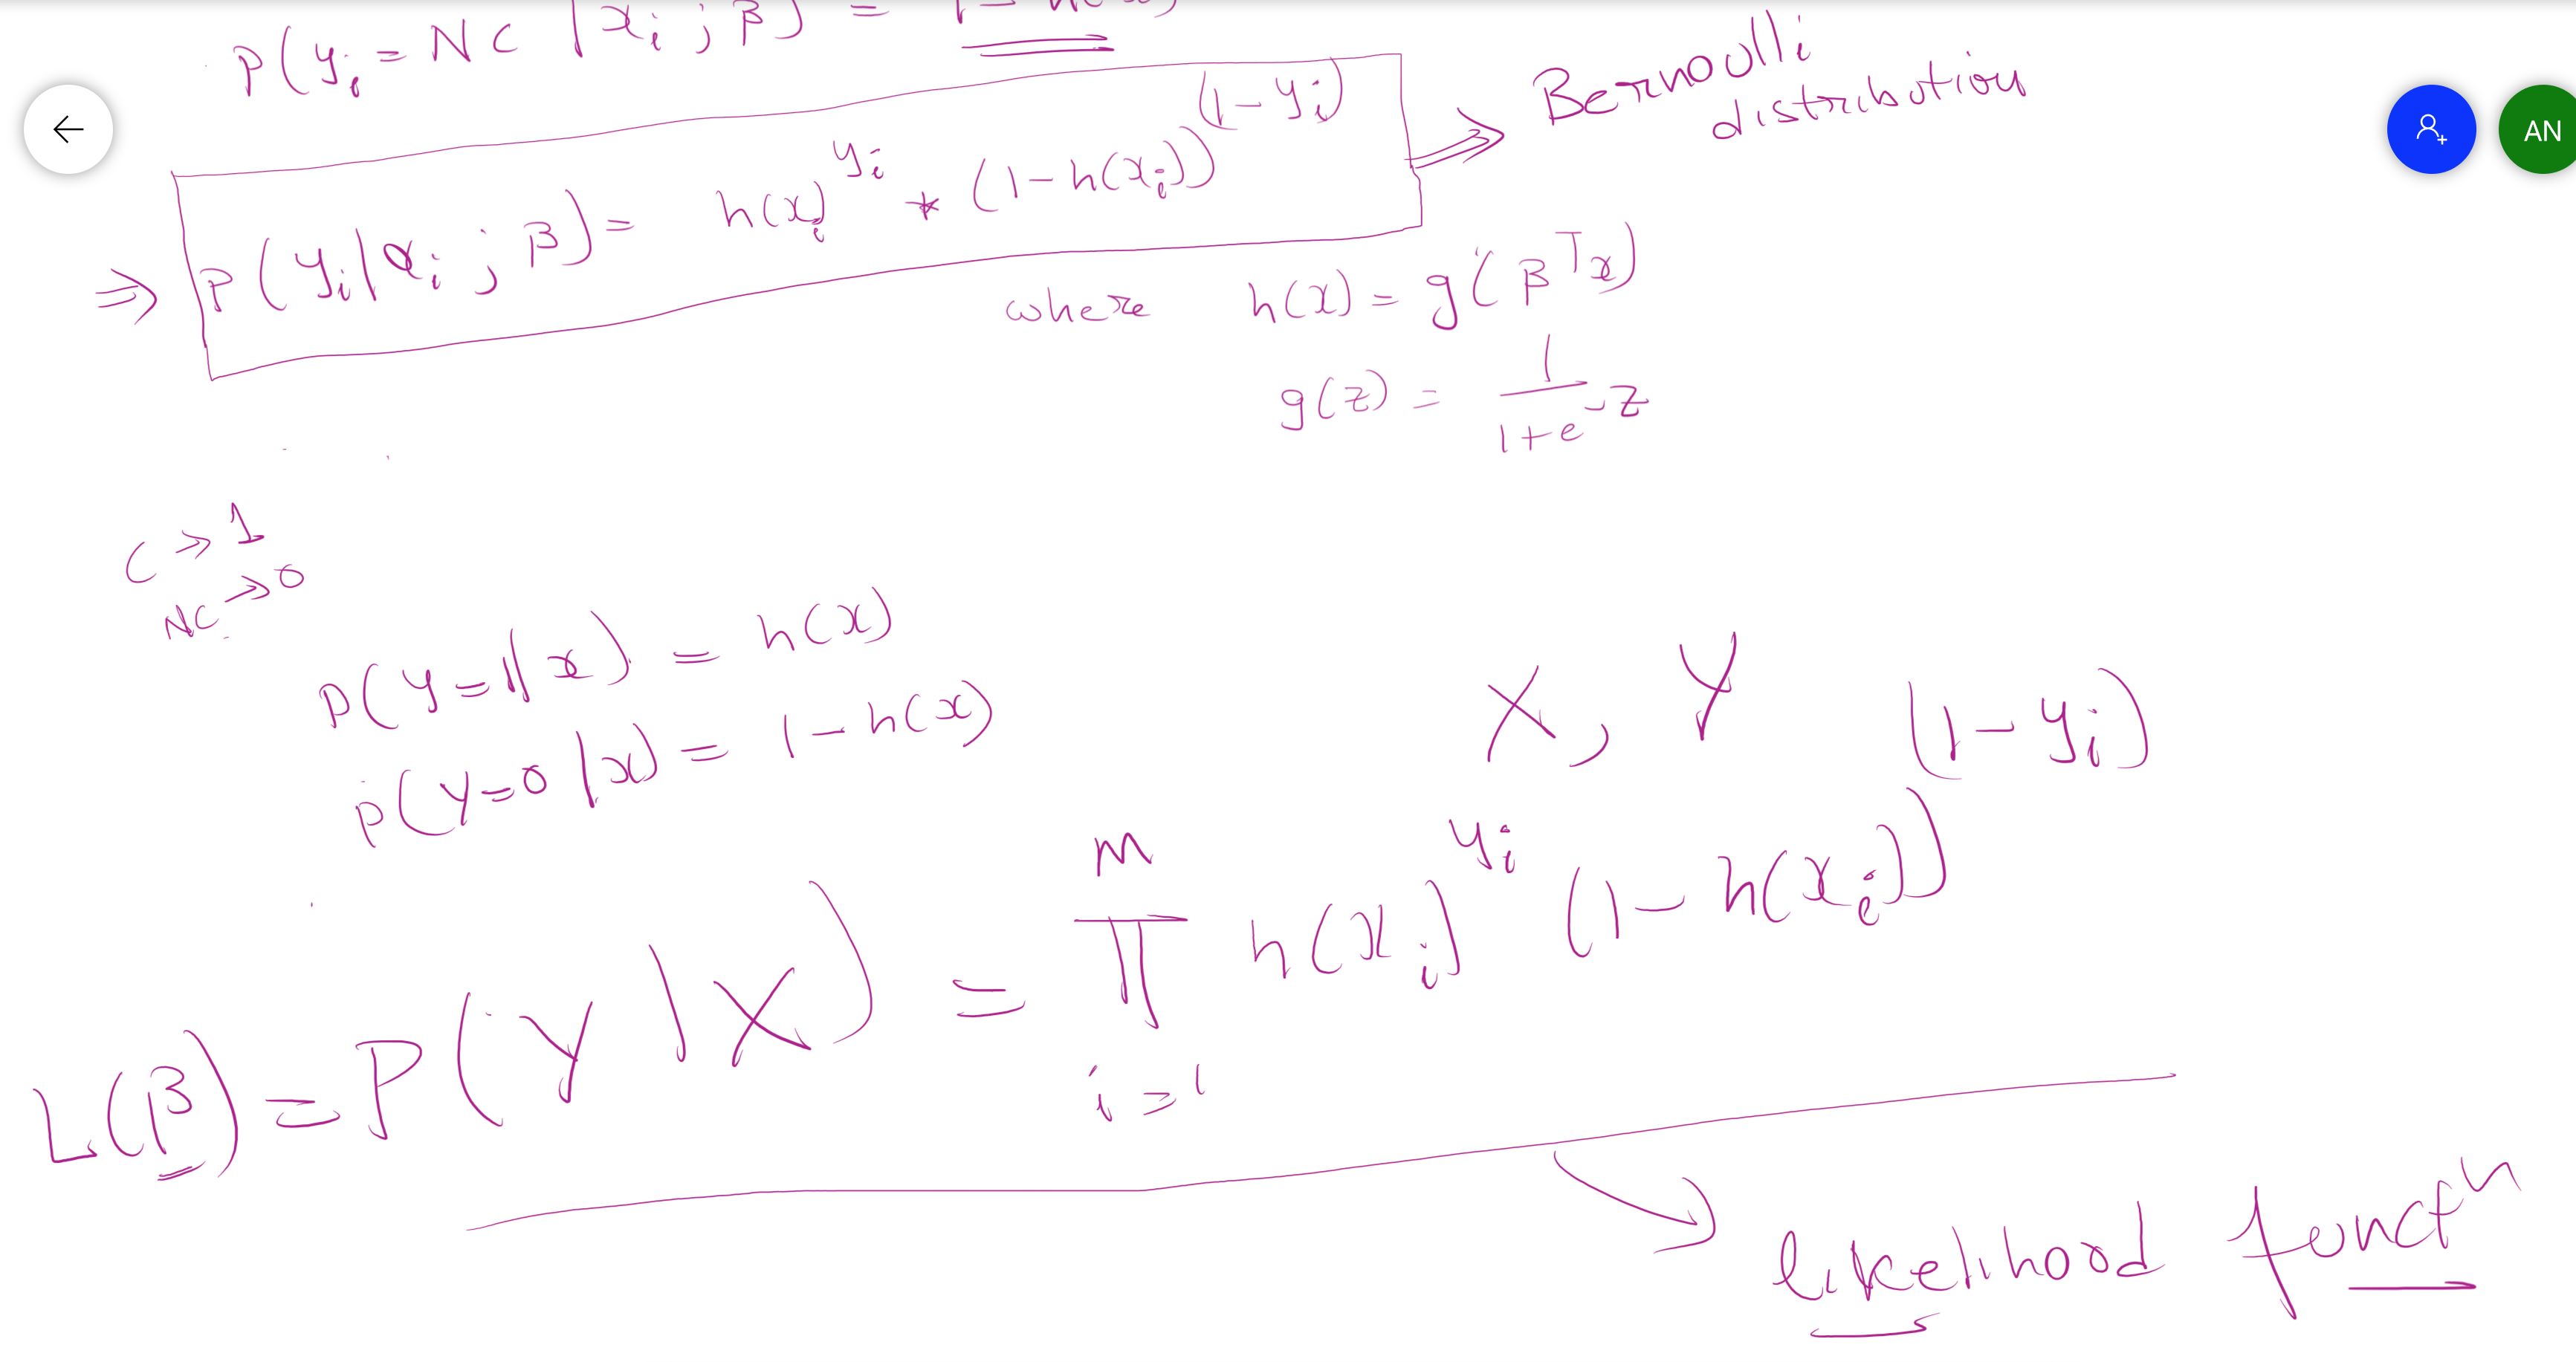 P(yᵢ = NC | xᵢ ; β) = 1 -
⇒ P(yᵢ | xᵢ ; β) = h(xᵢ)^yᵢ * (1 - h(xᵢ))^(1 - yᵢ) ⇒ Bernoulli
distribution
where h(x) = g(βᵀx)
g(z) = 1 / (1 + e^-z)
C → 1
NC → 0
P(y=1 | x) = h(x)
P(y=0 | x) = 1 - h(x)
X, Y
L(β) = P(Y | X) = ∏_{i=1}^{m} h(xᵢ)^yᵢ (1 - h(xᵢ))^(1 - yᵢ)
likelihood functⁿ
AN